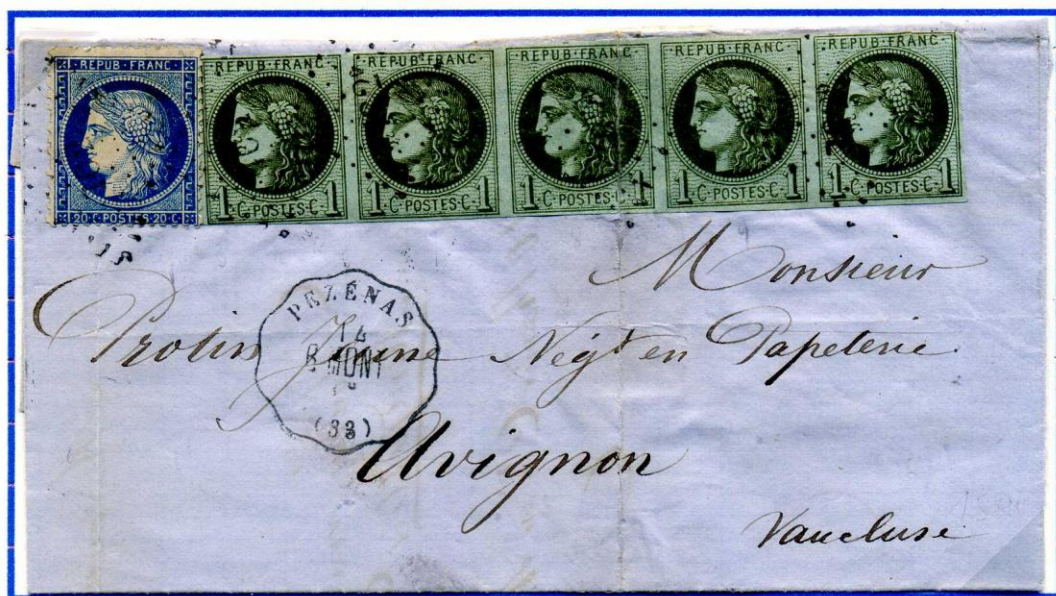 REPUB·FRANC·
20·C·POSTES·20·C·
REPUB·FRANC·
1·C·POSTES·C·1
REPUB·FRANC·
1·C·POSTES·C·1
REPUB·FRANC·
1·C·POSTES·C·1
REPUB·FRANC·
1·C·POSTES·C·1
REPUB·FRANC·
1·C·POSTES·C·1
Monsieur
Probin Jeune Négt en Papeterie
Avignon
Vaucluse
PEZÉNAS
MONT
(33)